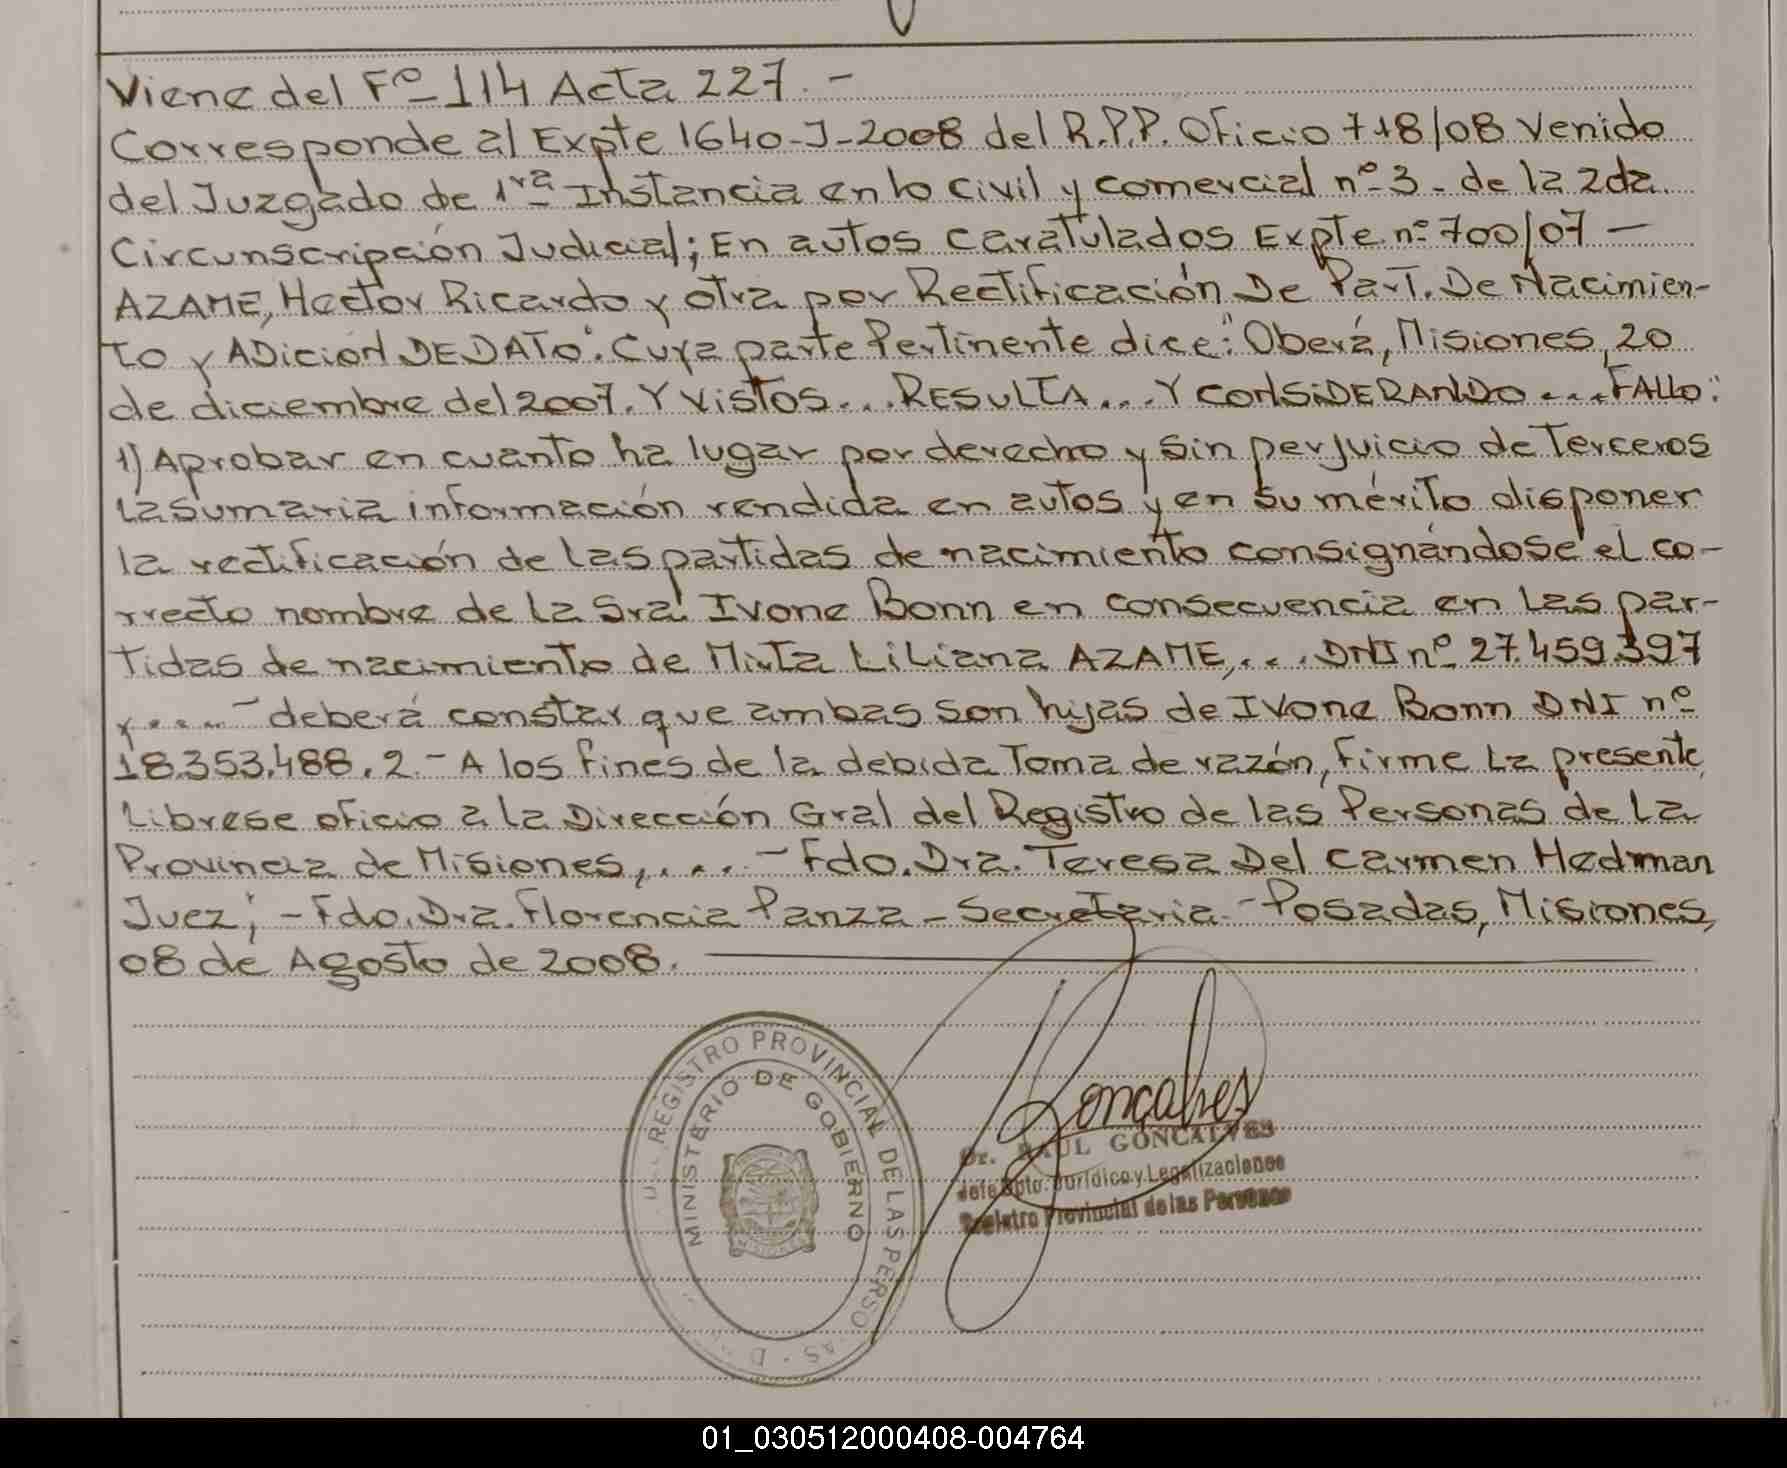 Viene del Fº 114 Acta 227. -
Corresponde al Expte 1640-J-2008 del R.P.P. Oficio 718/08 Venido
del Juzgado de 1ra Instancia en lo civil y comercial nº 3 - de la 2da
Circunscripción Judicial; En autos caratulados Expte nº 700/07 -
AZAME, Hector Ricardo y otra por Rectificación De Part. De Nacimien-
to y ADICION DE DATO". Cuya parte Pertinente dice: "Oberá, Misiones, 20
de diciembre del 2007. Y VISTOS... RESULTA... Y CONSIDERANDO ... FALLO:
1) Aprobar en cuanto ha lugar por derecho y sin perjuicio de Terceros
la sumaria información rendida en autos y en su mérito disponer
la rectificación de las partidas de nacimiento consignándose el co-
rrecto nombre de la Sra. Ivone Bonn en consecuencia en las par-
tidas de nacimiento de Mirta Liliana AZAME, ... DNI nº 27.459.397
y .... - deberá constar que ambas son hijas de Ivone Bonn DNI nº
18.353.488. 2.- A los fines de la debida Toma de razón, Firme La presente
Librese oficio a la Dirección Gral del Registro de las Personas de La
Provincia de Misiones, ... - Fdo. Dra. Teresa Del Carmen Hedman
Juez; - Fdo. Dra. Florencia Panza - Secretaria - Posadas, Misiones,
08 de Agosto de 2008.
REGISTRO PROVINCIAL DE LAS PERSO AS
MINISTERIO DE GOBIERNO
Goncalves
Dr. RAUL GONCALVES
Jefe Dpto. Jurídico y Legalizaciones
Registro Provincial de las Personas
01_030512000408-004764